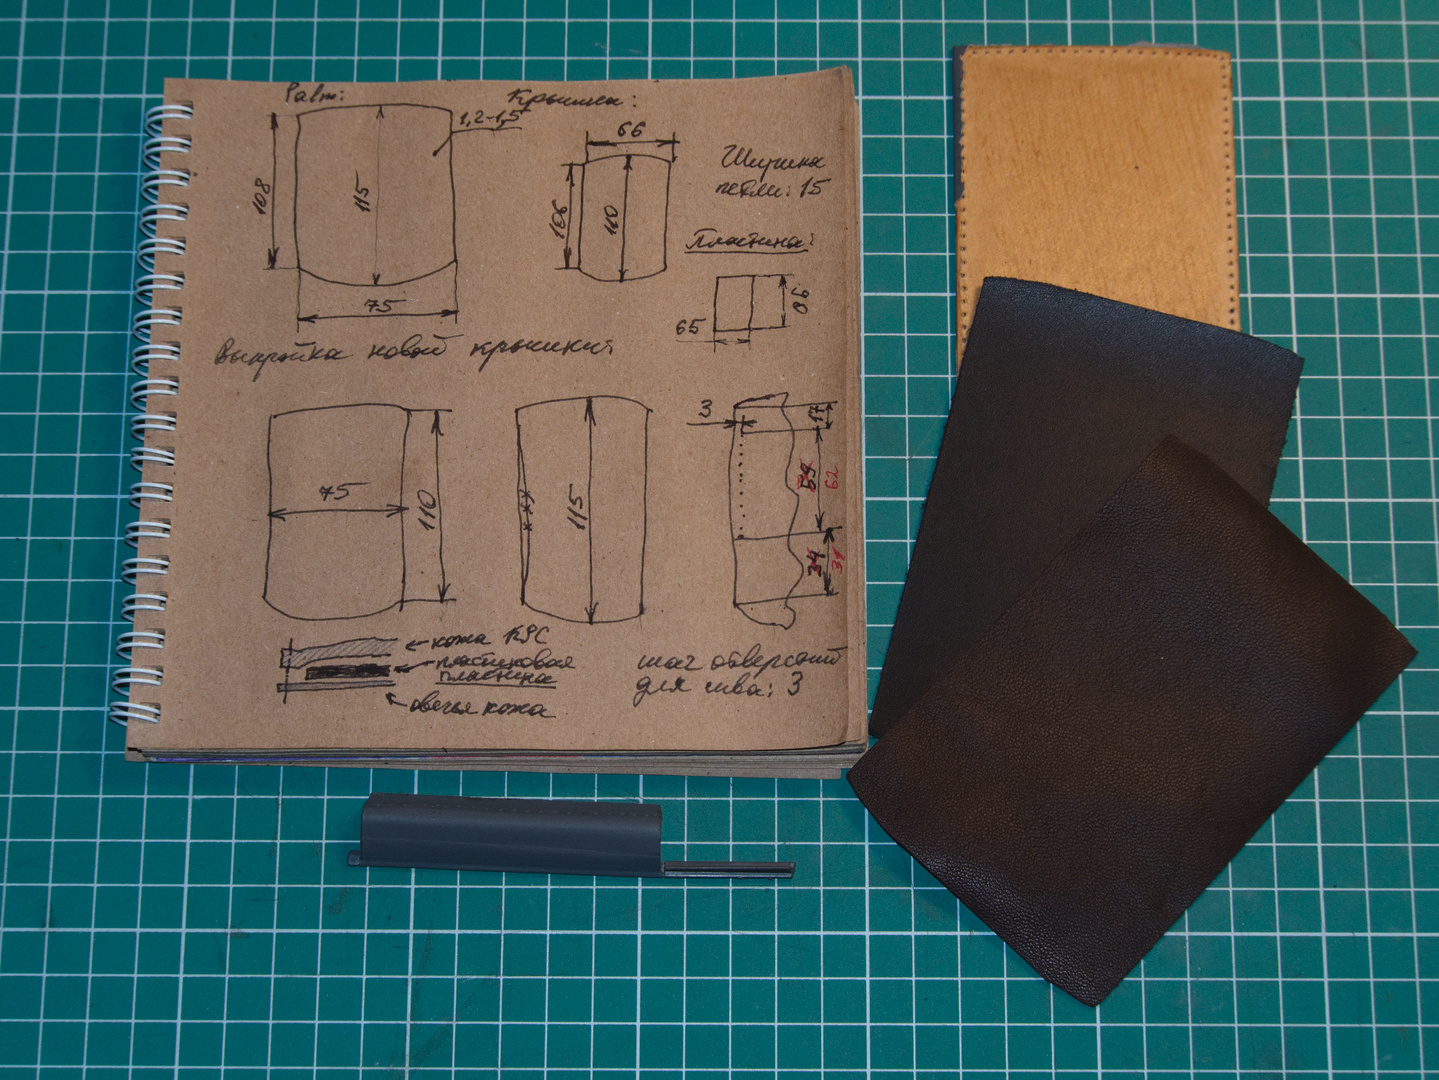 Palm:
Крышка:
1,2-1,5
66
108
115
106
110
Ширина
петли: 15
Пластина:
65
90
75
Выкройка новой крышки:
75
110
115
3
17
59
62
34
31
кожа КРС
пластиковая
пластина
овечья кожа
шаг отверстий
для шва: 3